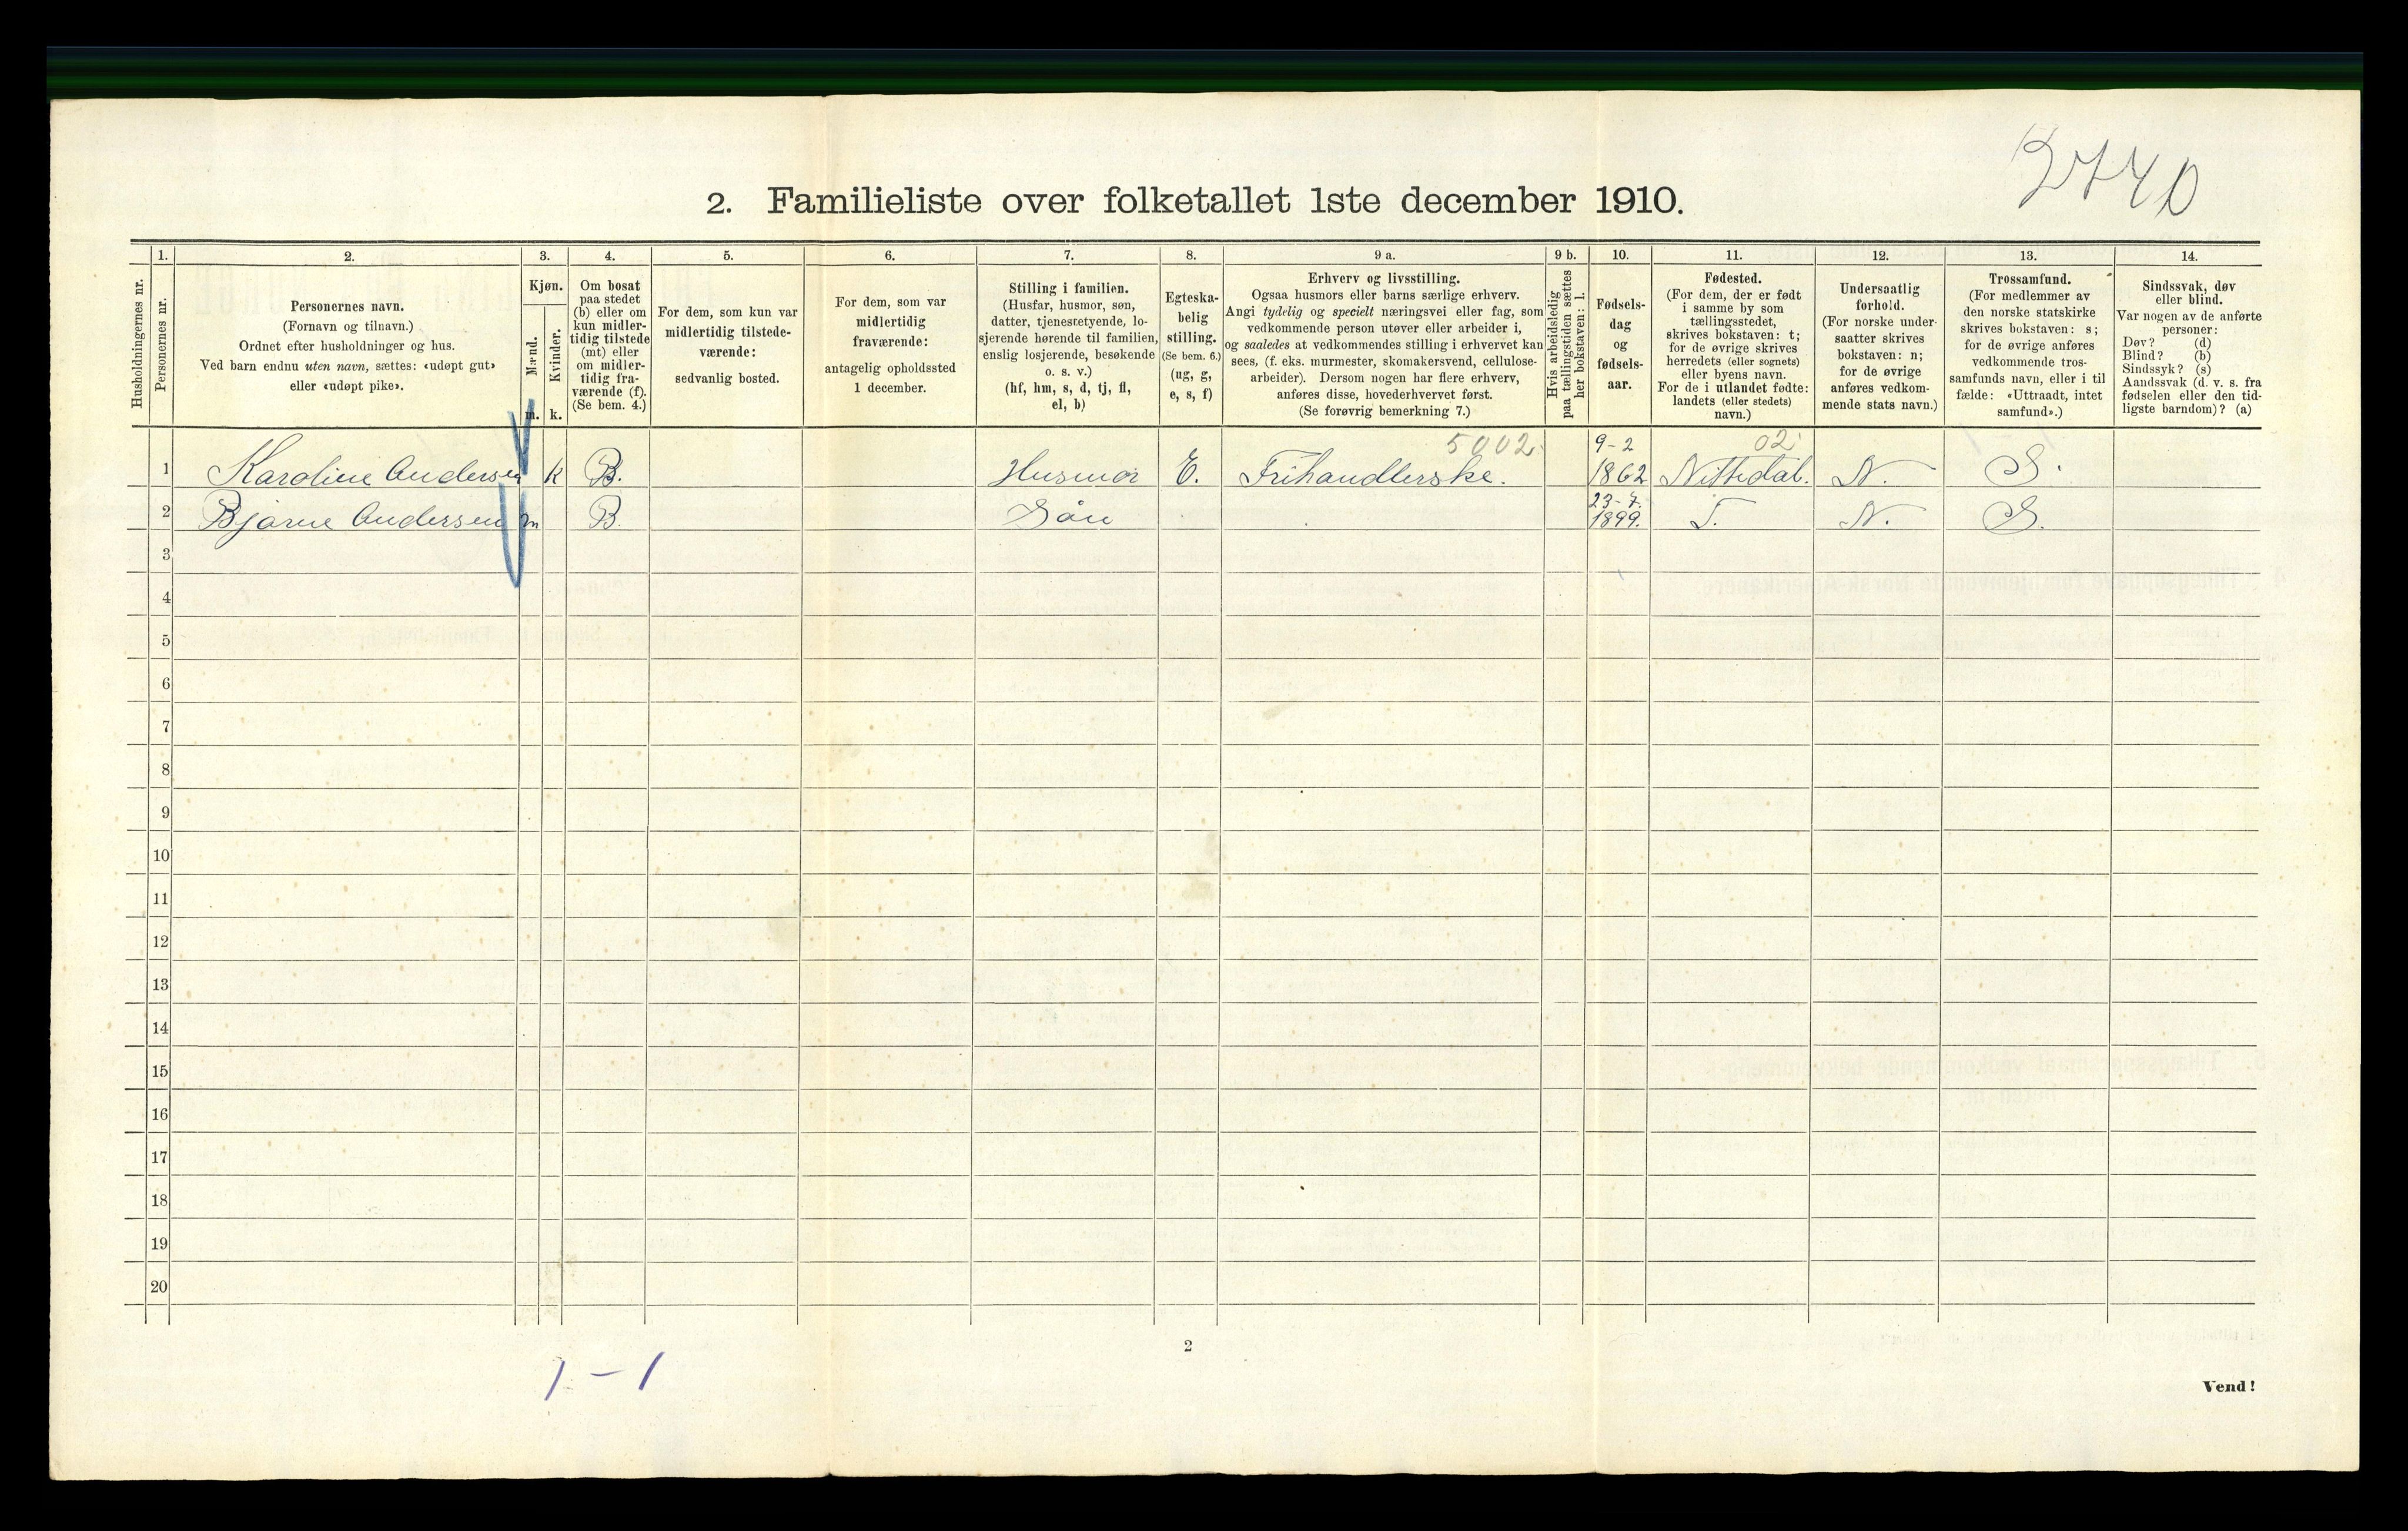 2740
2. Familieliste over folketallet 1ste december 1910.
Husholdningernes nr.
1.
Personernes nr.
2.
Personernes navn.
(Fornavn og tilnavn.)
Ordnet efter husholdninger og hus.
Ved barn endnu uten navn, sættes: «udøpt gut»
eller «udøpt pike».
3.
Kjøn.
Mænd.
Kvinder.
m.
k.
4.
Om bosat
paa stedet
(b) eller om
kun midler-
tidig tilstede
(mt) eller
om midler-
tidig fra-
værende (f).
(Se bem. 4.)
5.
For dem, som kun var
midlertidig tilstede-
værende:
sedvanlig bosted.
6.
For dem, som var
midlertidig
fraværende:
antagelig opholdssted
1 december.
7.
Stilling i familien.
(Husfar, husmor, søn,
datter, tjenestetyende, lo-
sjerende hørende til familien,
enslig losjerende, besøkende
o. s. v.)
(hf, hm, s, d, tj, fl,
el, b)
8.
Egteska-
belig
stilling.
(Se bem. 6.)
(ug, g,
e, s, f)
9 a.
Erhverv og livsstilling.
Ogsaa husmors eller barns særlige erhverv.
Angi tydelig og specielt næringsvei eller fag, som
vedkommende person utøver eller arbeider i,
og saaledes at vedkommendes stilling i erhvervet kan
sees, (f. eks. murmester, skomakersvend, cellulose-
arbeider). Dersom nogen har flere erhverv,
anføres disse, hovederhvervet først.
(Se forøvrig bemerkning 7.)
9 b.
Hvis arbeidsledig
paa tællingstiden sættes
her bokstaven: l.
10.
Fødsels-
dag
og
fødsels-
aar.
11.
Fødested.
(For dem, der er født
i samme by som
tællingsstedet,
skrives bokstaven: t;
for de øvrige skrives
herredets (eller sognets)
eller byens navn.
For de i utlandet fødte:
landets (eller stedets)
navn.)
12.
Undersaatlig
forhold.
(For norske under-
saatter skrives
bokstaven: n;
for de øvrige
anføres vedkom-
mende stats navn.)
13.
Trossamfund.
(For medlemmer av
den norske statskirke
skrives bokstaven: s;
for de øvrige anføres
vedkommende tros-
samfunds navn, eller i til-
fælde: «Uttraadt, intet
samfund».)
14.
Sindssvak, døv
eller blind.
Var nogen av de anførte
personer:
Døv? (d)
Blind? (b)
Sindssyk? (s)
Aandssvak (d. v. s. fra
fødselen eller den tid-
ligste barndom)? (a)
5002. 9-2 02.
1 Karoline Andersen k B. Husmor E. Frihandlerske. 1862 Nittedal. N. S.
23-7.
2 Bjarne Andersen m B. Søn 1899. T. N. S.
3
4
5
6
7
8
9
10
11
12
13
14
15
16
17
18
19
20
2
1 - 1
Vend!